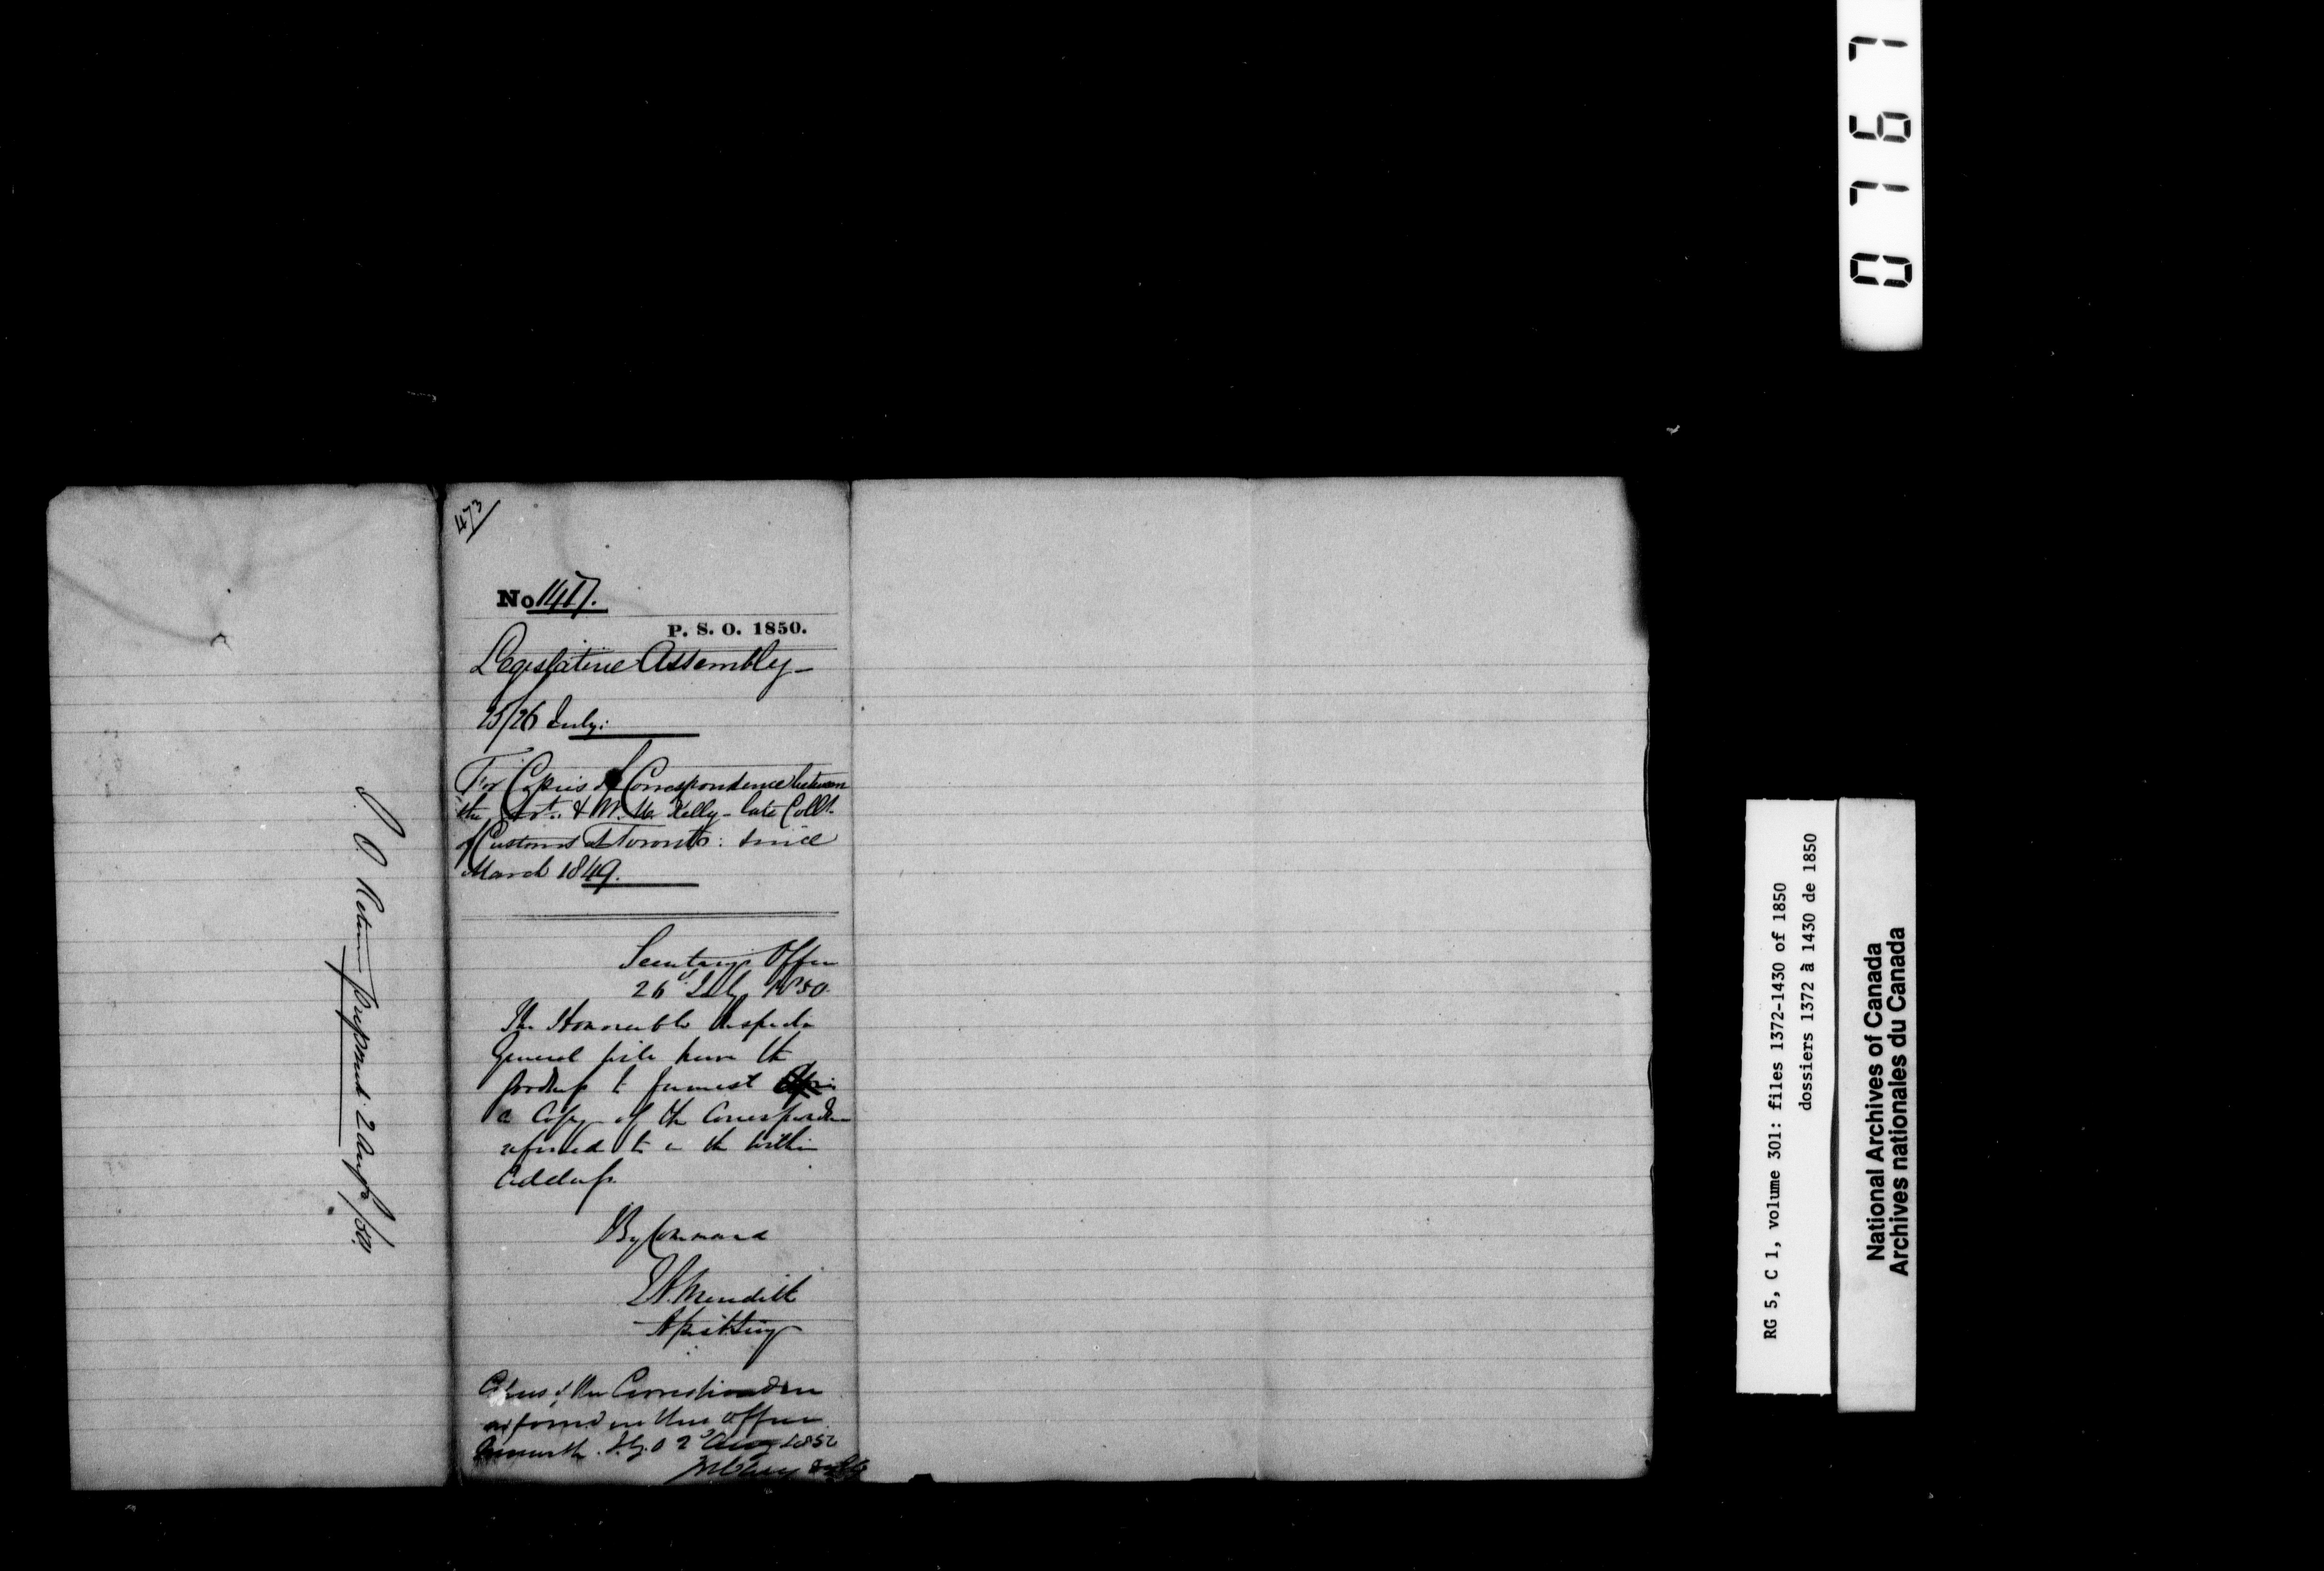 0767
473
No 1417.
P. S. O. 1850.
Legislative Assembly
25/26 July.
For Copies of Correspondence between
the Govt. & M. Kelly - late Collr.
of Customs at Toronto: since
March 1849.
Secretary's Office
26th July 1850.
The Honorable Inspector
General will have the
goodness to furnish
a Copy of the Correspondence
referred to in the within
Address.
By Command
E.A. Meredith
Asst Secy
Copies of the Correspondence
as found in this office
herewith. I.G.O 2d Aug 1850
J. O. Return prepared. 2 Augt/50.
RG 5, C 1, volume 301: files 1372-1430 of 1850
dossiers 1372 à 1430 de 1850
National Archives of Canada
Archives nationales du Canada